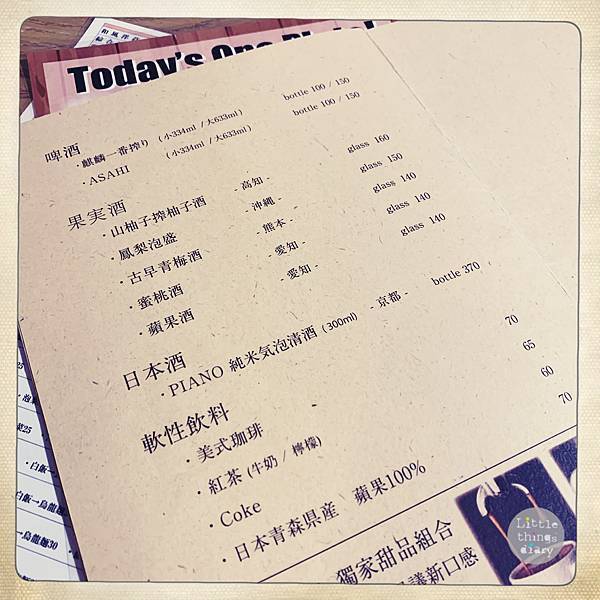 Today's One Pl
啤酒
・麒麟一番搾り (小334ml / 大633ml) bottle 100 / 150
・ASAHI (小334ml / 大633ml) bottle 100 / 150
果実酒
・山柚子搾柚子酒 - 高知 - glass 160
・鳳梨泡盛 - 沖縄 - glass 150
・古早青梅酒 - 熊本 - glass 140
・蜜桃酒 - 愛知 - glass 140
・蘋果酒 - 愛知 - glass 140
日本酒
・PIANO 純米気泡清酒 (300ml) - 京都 - bottle 370
軟性飲料
・美式珈琲 70
・紅茶 (牛奶 / 檸檬) 65
・Coke 60
・日本青森県産 蘋果100% 70
獨家甜品組合
議新口感
白飯→烏龍麵30
Little
things
diary